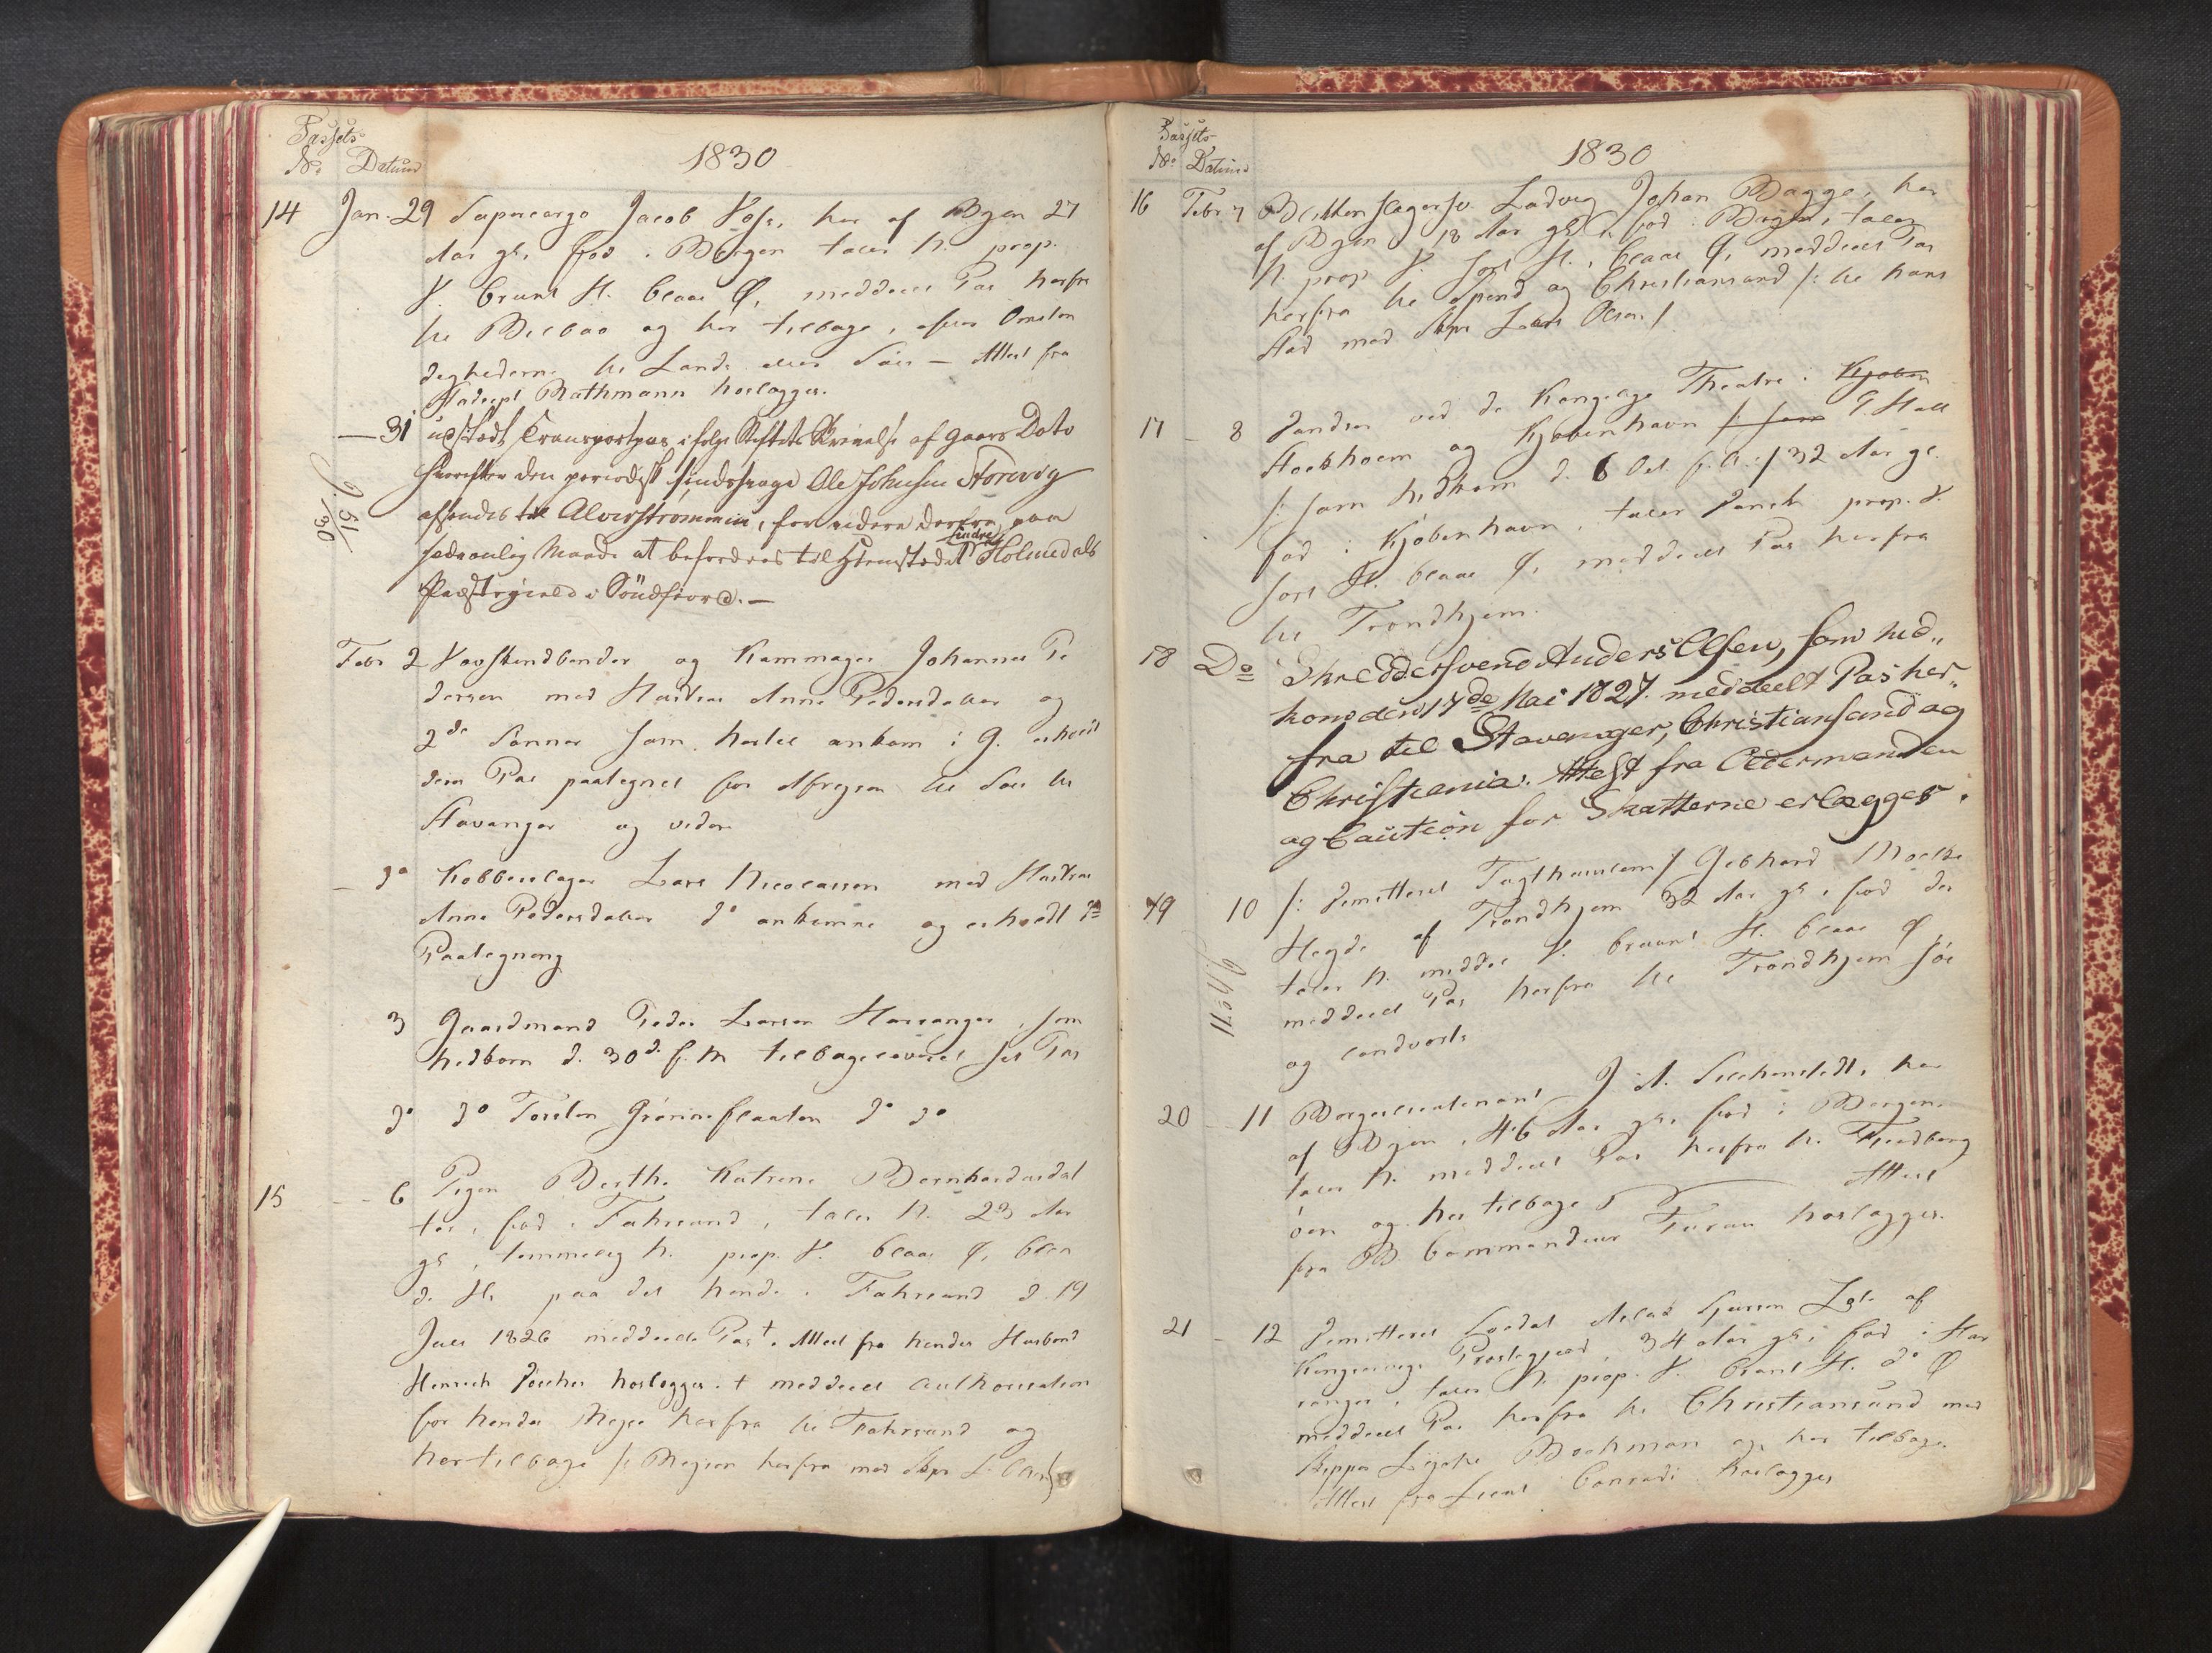 Passets
No Datum
1830
14 Jan. 29 Supercargo Jacob Voss, her af Byen 27
Aar gl. fød i Bergen taler N. prop.
V. bruunt H. blaae Ø, meddeelt Pas herfra
til Bilbao og her tilbage, efter Omstæn
dighederne til Lands eller Søes – Attest fra
Stadscpt Rathmann hoslægger.
— 31 udstædt Transportpas ifølge Stiftets Skrivelse af Gaars Dato
hvorefter den periodisk sindssvage Ole Johnsen Storevig
afsendes til Alverstrømmen, for videre derfra paa
sædvanlig Maade at befordres til Hiemstedet Indre Holmedals
Præstegield i Søndfiord. —
J. 51/30
Febr 2 Vævskeedbinder og Kammager Johannes Pe
dersen med Hustru Anne Pedersdatter og
2de Sønner som hertil ankom i G. erholdt
dem Pas paategnet for Afreisen til Søes til
Stavanger og videre
— do Kobberslager Lars Nicolaisen med Hustrue
Anne Pedersdatter do ankomne og erholdt do
Paategning
3 Gaardmand Peder Larsen Hardanger, som
hidkom d. 30 d. f. M tilbageleveret sit Pas
do do Torsten Grønneflaaten do do
15 — 6 Pigen Berthe Katrine Bernhardusdat
ter, fød i Fahrsund, taler N. 23 Aar
gl, temmelig h. prop. V. blaae Ø, blon
de H. paa det hende i Fahrsund d. 19
Juli 1826 meddeelte Pas †. Attest fra hendes Huusbond
Hinrich hoslægger. † meddeelt Authorisation
for hendes Reyse herfra til Fahrsund og
hertilbage /: Reysen herfra med Skpr
Passets
No Datum
1830
16 Febr 7 Blikkenslagersv. Ludvig Johan Bagge, her
af Byen 18 Aar gl. fød i Bergen, taler
N. prop V. sort H., blaae Ø, meddeelt Pas
herfra til Spind og Christiansand /: til hans
Sted med Skpr Lars Olsen /
17 — 8 Dandser ved de Kongelige Theatre i Kjøben
Stockholm og Kjøbenhavn /: som P. Hall
/: som hidkom d. 6 Oct. f. A. :/ 32 Aar gl.
fød i Kjøbenhavn, taler Dansk prop. V.
sort H. blaae Ø, meddeelt Pas herfra
til Trondhjem.
18 Do Skreddersvend Anders Olsen, som hid„
kom den 17de Mai 1827. meddeelt Pas her„
fra til Stavanger, Christiansand og
Christiania. Attest fra Oldermanden
og Caution for Skatterne erlægges.
19 10 /: Demitteret Tugthuuslem / Gebhard Moelke
Hegde af Trondhjem 32 Aar gl. fød der
taler N. middel V. bruunt H. blaae Ø
meddeelt Pas herfra til Trondhjem søe
og landværts
J. No 11
20 — 11 Borgerlieutenant J. A. her
af Byen, 46 Aar gl. fød i Bergen.
taler N. meddeelt Pas herfra til
øen og her tilbage Attest
fra B Commandeur hoslægger.
21 — 12 Demitteret Soldat Aslak af
Kingservigs Præstegjeld, 34 Aar gl. fød i Har
danger, taler N. prop. V. bruunt H. do Ø
meddeelt Pas herfra til Christiansund med
Skipper Bochman og her tilbage.
Attest fra Lieut Conradi hoslægger